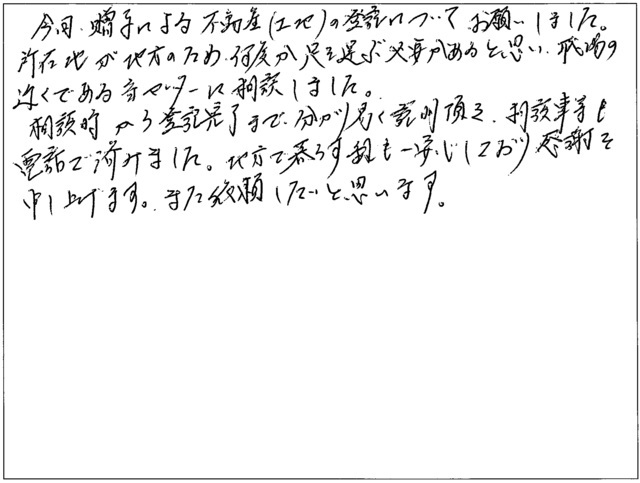 今回、贈与による不動産(土地)の登記についてお願いしました。
所在地が地方のため、何度か足を運ぶ必要があると思い、職場の
近くである寺センターに相談しました。
相談時から登記完了まで、分かり易く説明頂き、相談事等も
電話で済みました。地方で暮らす親も一安心しており感謝を
申し上げます。また依頼したいと思います。